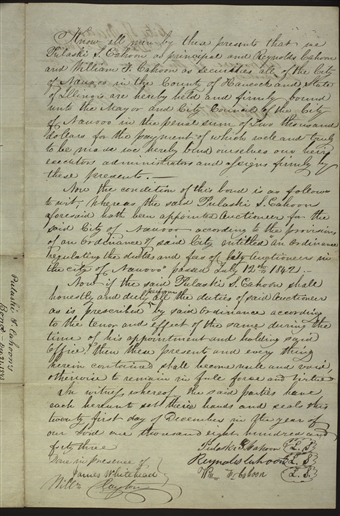 Know all men by these presents that we
Pulaski S. Cahoon as principal and Reynolds Cahoon
and William F. Cahoon as securities all of the City
of Nauvoo in the County of Hancock and State
of Illinois are hereby held and firmly bound
unto the Mayor and City Council of the City
of Nauvoo in the penal sum of Two thousand
dollars for the payment of which well and truly
to be made we hereby bind ourselves our heirs
executors administrators and assigns firmly by
these presents.—
Now the condition of this bond is as follows
to wit, Whereas the said Pulaski S. Cahoon
aforesaid hath been appointed Auctioneer for the
said City of Nauvoo according to the provisions
of an Ordinance of said City entitled an Ordinance
regulating the duties and fees of Auctioneers in
the City of Nauvoo passed July 12th 1842.
Now if the said Pulaski S. Cahoon shall
honestly and duly perform all the duties of said Auctioneer
as is prescribed by said Ordinance according
to the tenor and effect of the same during the
time of his appointment and holding said
Office, then these presents and every thing
herein contained shall become null and void,
otherwise to remain in full force and virtue
In witness whereof the said parties have
each hereunto set their hands and seals this
twenty first day of December in the year of
our Lord one thousand eight hundred and
forty three
Pulaski S. Cahoon L.S.
Done in presence of
Reynolds Cahoon L.S.
James Whitehead
Wm F. Cahoon L.S.
Willm
Pulaski S. Cahoon's
Bond